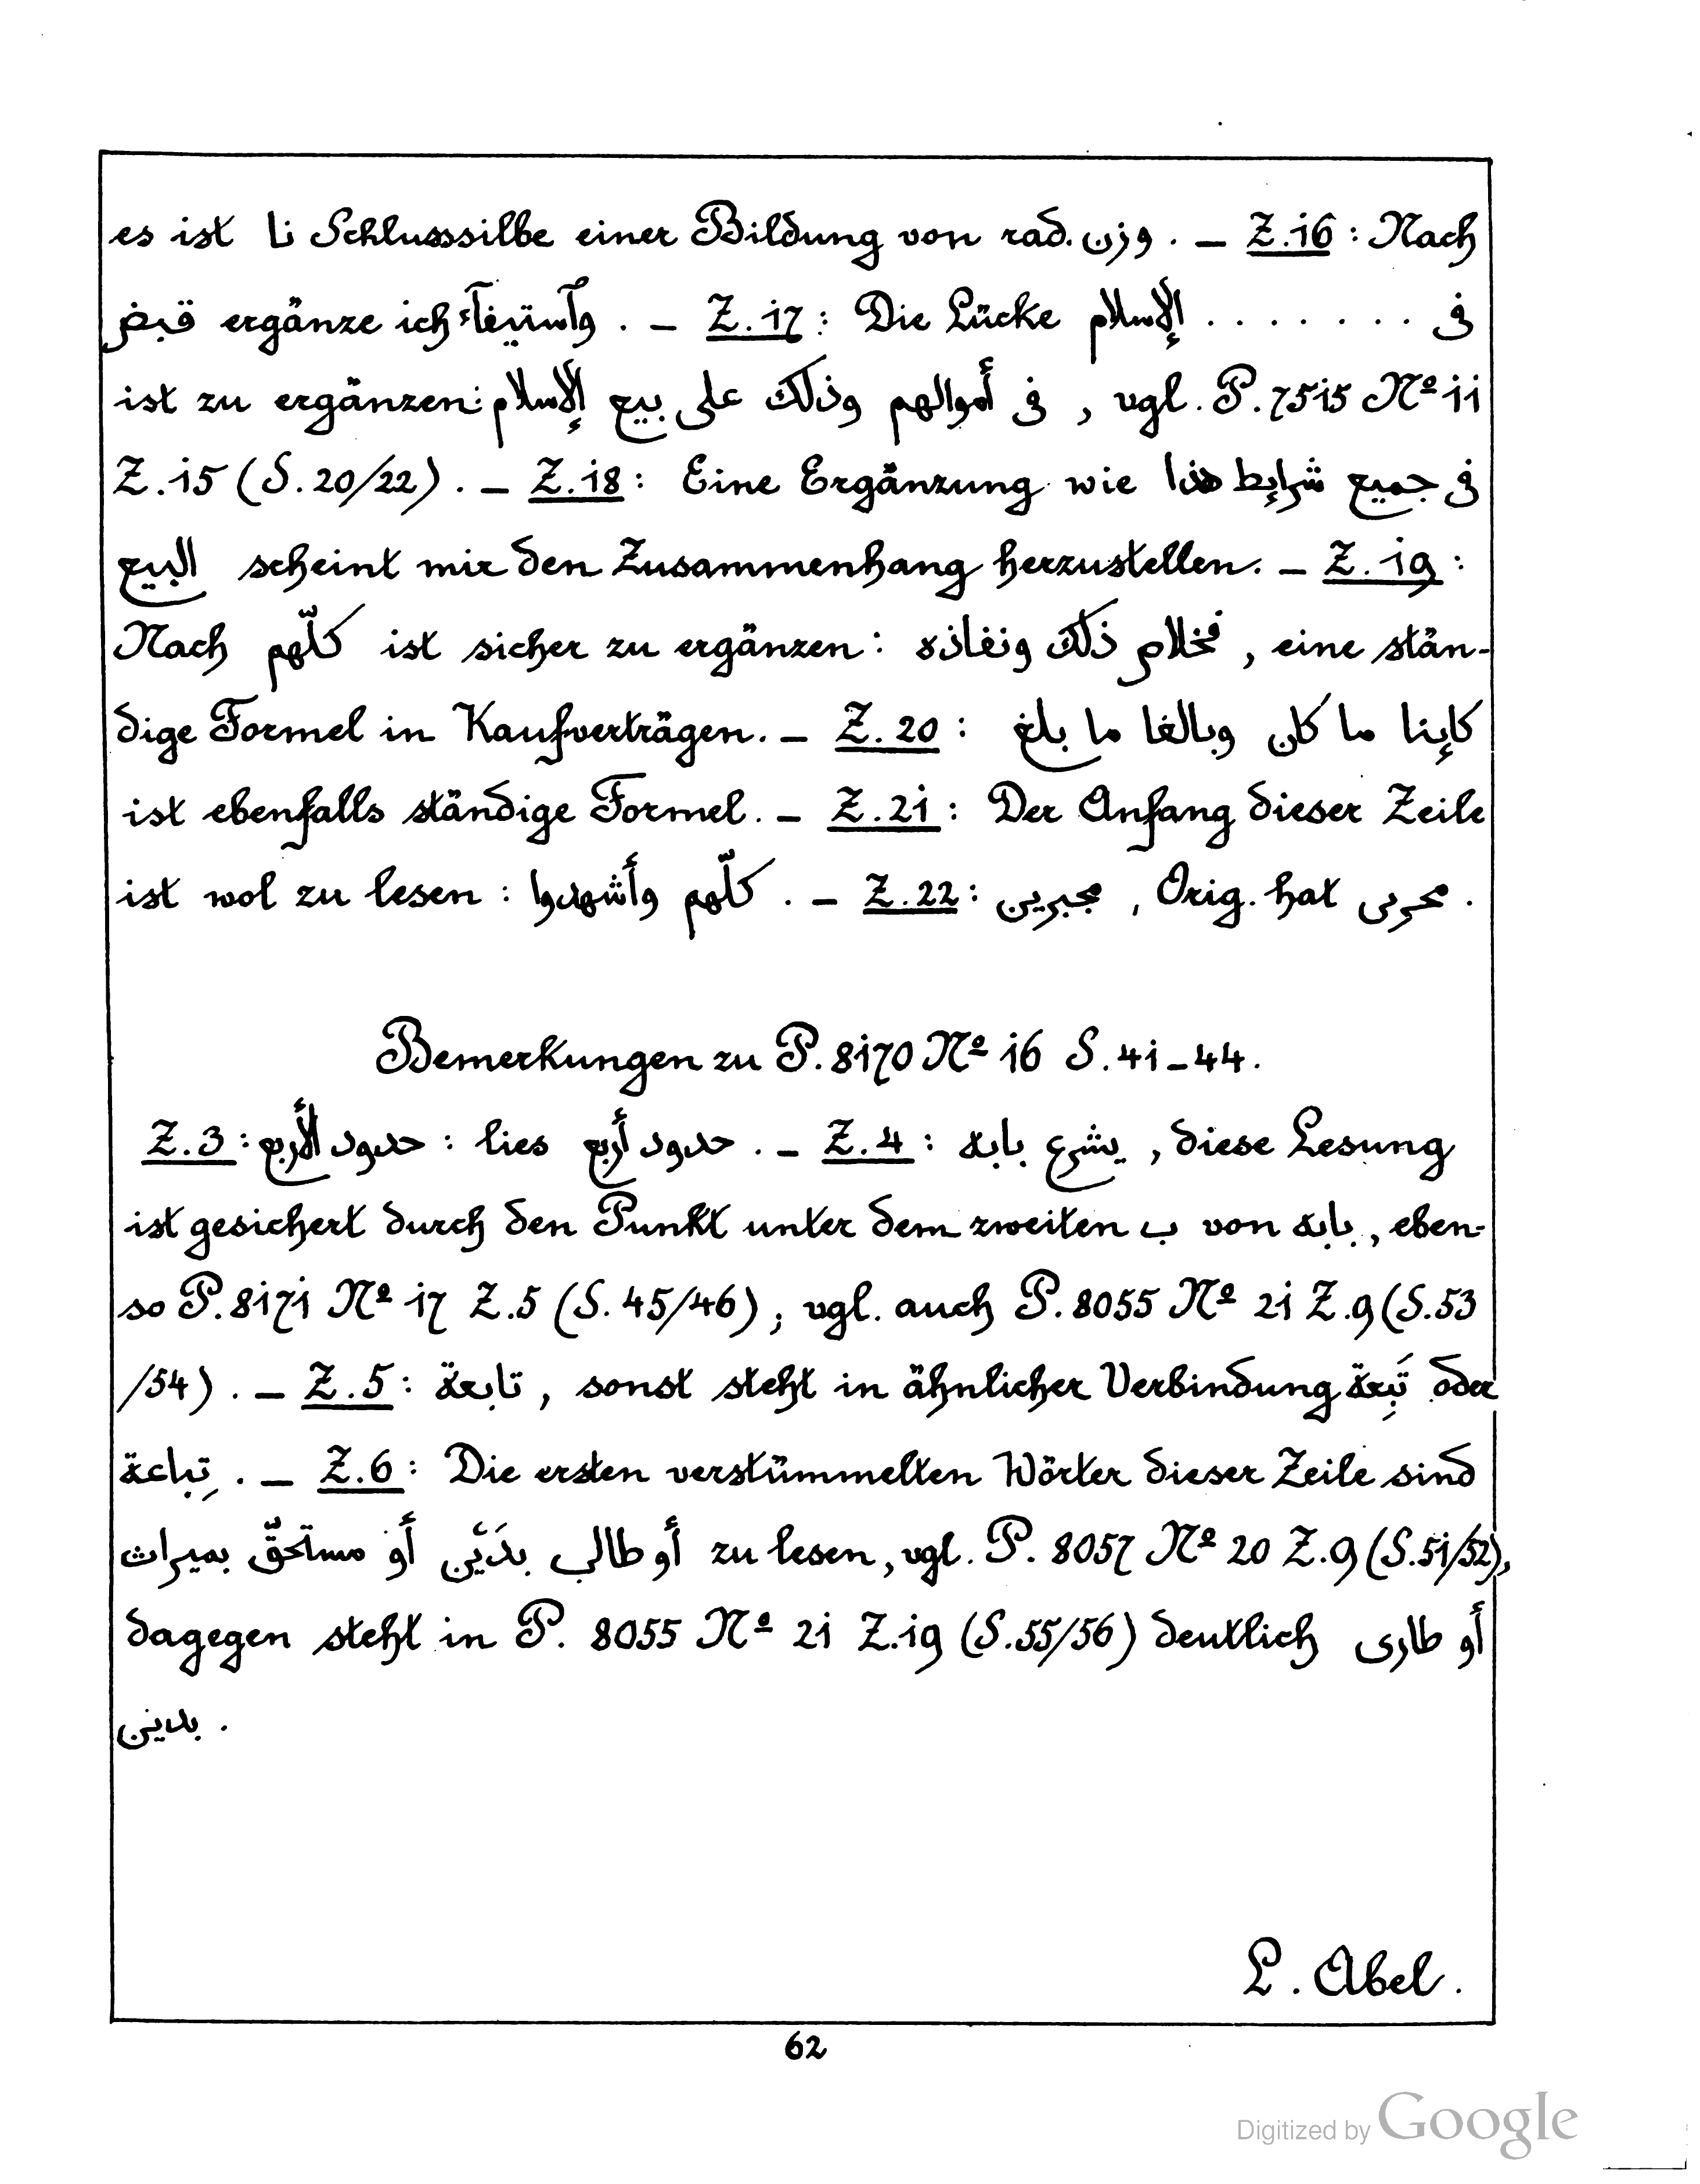 es ist نا Schlusssilbe einer Bildung von rad. وزن. – Z.16: Nach
قبض ergänze ich وٱستيفآء. – Z.17: Die Lücke الإسلام ........ فى
ist zu ergänzen: فى أموالهم وذلك على بيع الإسلام, vgl. P.7515 Nº 11
Z.15 (S.20/22). – Z.18: Eine Ergänzung wie فى جميع شرايط هذا
البيع scheint mir den Zusammenhang herzustellen. – Z.19:
Nach كلّهم ist sicher zu ergänzen: ذلك ونفاذه, eine stän-
dige Formel in Kaufverträgen. – Z.20: كاينا ما كان وبالغا ما بلغ
ist ebenfalls ständige Formel. – Z.21: Der Anfang dieser Zeile
ist wol zu lesen: كلّهم وأشهدوا. – Z.22: مجبرين, Orig. hat محرىى.
Bemerkungen zu P.8170 Nº 16 S.41–44.
Z.3: حدود الأربع: lies حدود أربع. – Z.4: يشرع بابه, diese Lesung
ist gesichert durch den Punkt unter dem zweiten ب von بابه, eben-
so P.8171 Nº 17 Z.5 (S.45/46); vgl. auch P.8055 Nº 21 Z.9 (S.53
/54). – Z.5: تابعة, sonst steht in ähnlicher Verbindung تَبِعة oder
تِباعة. – Z.6: Die ersten verstümmelten Wörter dieser Zeile sind
أو طالب بدَيْن أو مستحقّ بميراث zu lesen, vgl. P. 8057 Nº 20 Z.9 (S.51/52),
dagegen steht in P. 8055 Nº 21 Z.19 (S.55/56) deutlich أو طارى
بدين.
L. Abel.
62
Digitized by Google